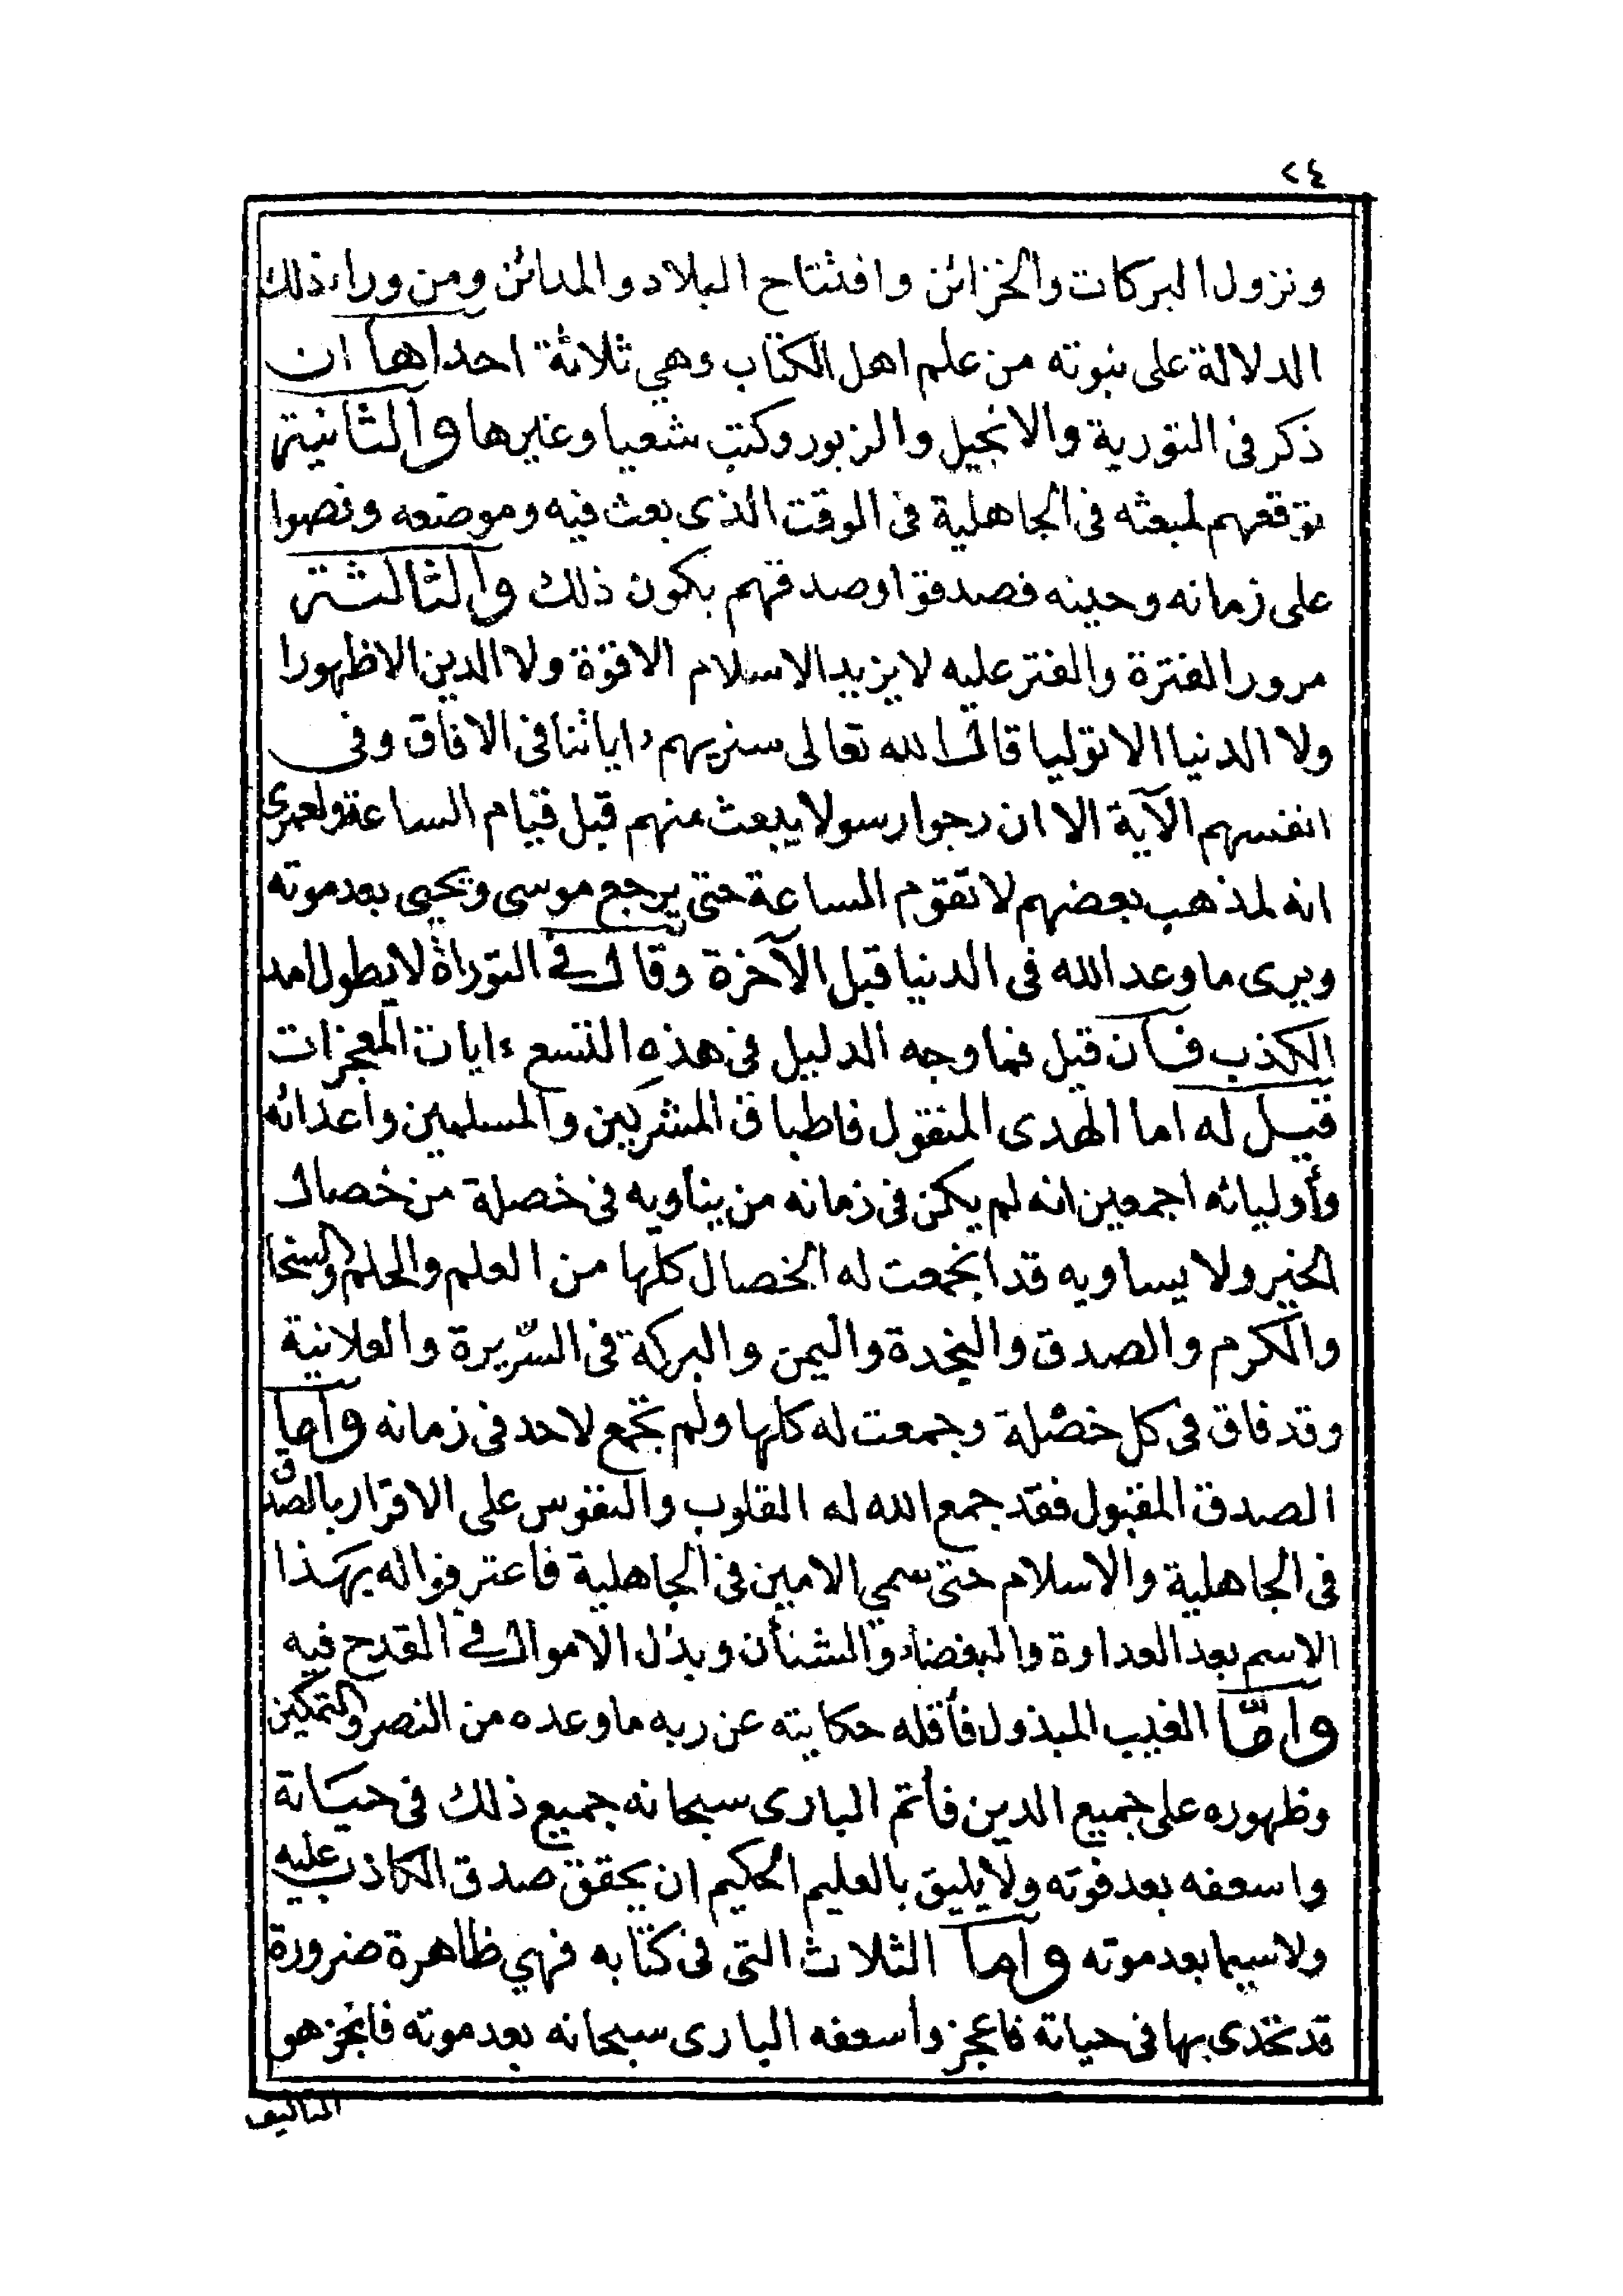 ٢٤
ونزول البركات والخزائن وافتتاح البلاد والمدائن ومن وراء ذلك
الدلالة على نبوته من علم اهل الكتاب وهي ثلاثة احداها ان
ذكر فى التورية والانجيل والزبور وكتب شعيا وغيرها والثانية
توقعهم لمبعثه فى الجاهلية فى الوقت الذى بعث فيه وموضعه ونصوا
على زمانه وحينه فصدقوا وصدقهم بكون ذلك والثالثة
مرور الفترة والفتر عليه لا يزيد الاسلام الا قوة ولا الدين الا ظهورا
ولا الدنيا الا توليا قال الله تعالى سنريهم ءاياتنا فى الافاق وفى
انفسهم الآية الا ان رجوا رسولا يبعث منهم قبل قيام الساعة ولعمرى
انه لمذهب بعضهم لا تقوم الساعة حتى يرجع موسى ويحيى بعد موته
ويرى ما وعد الله فى الدنيا قبل الآخرة وقال فى التوراة لا يطول امد
الكذب فان قيل فما وجه الدليل فى هذه التسع ءايات المعجزات
قيل له اما الهدى المنقول فاطباق المشركين والمسلمين واعدائه
وأوليائه اجمعين انه لم يكن فى زمانه من يناويه فى خصلة من خصال
الخير ولا يساويه قد انجمعت له الخصال كلها من العلم والحلم والسخا
والكرم والصدق والنجدة واليمن والبركة فى السّريرة والعلانية
وقد فاق فى كل خصلة وجمعت له كلها ولم تجمع لاحد فى زمانه وأما
الصدق المقبول فقد جمع الله له القلوب والنفوس على الاقرار بالصّدق
فى الجاهلية والاسلام حتى سمي الامين فى الجاهلية فاعترفوا له بهذا
الاسم بعد العداوة والبغضاء والشنأن وبذل الاموال فى القدح فيه
وامّا الغيب المبذول فأقله حكايته عن ربه ما وعده من النصر والتمكين
وظهوره على جميع الدين فأتم البارى سبحانه جميع ذلك فى حياته
واسعفه بعد فوته ولا يليق بالعليم الحكيم ان يحقق صدق الكاذب عليه
ولا سيما بعد موته وأما الثلاث التى فى كتابه فهي ظاهرة ضرورة
قد تحدى بها فى حياته فاعجز وأسعفه البارى سبحانه بعد موته فانجز هو
التاليف